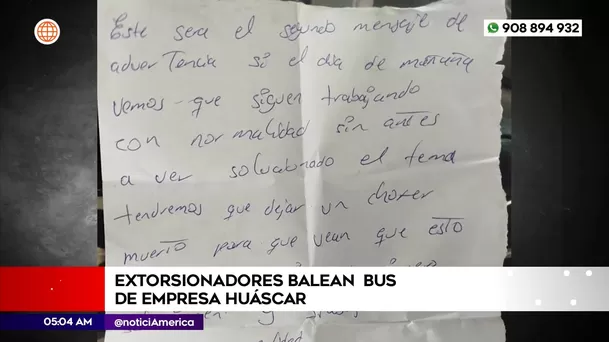 908 894 932
Este sera el segundo mensaje de
advertencia si el dia de mañana
vemos que siguen trabajando
con normalidad sin antes
a ver solucionado el tema
tendremos que dejar un chofer
muerto para que vean que esto
EXTORSIONADORES BALEAN BUS
DE EMPRESA HUÁSCAR
05:04 AM @noticiAmerica